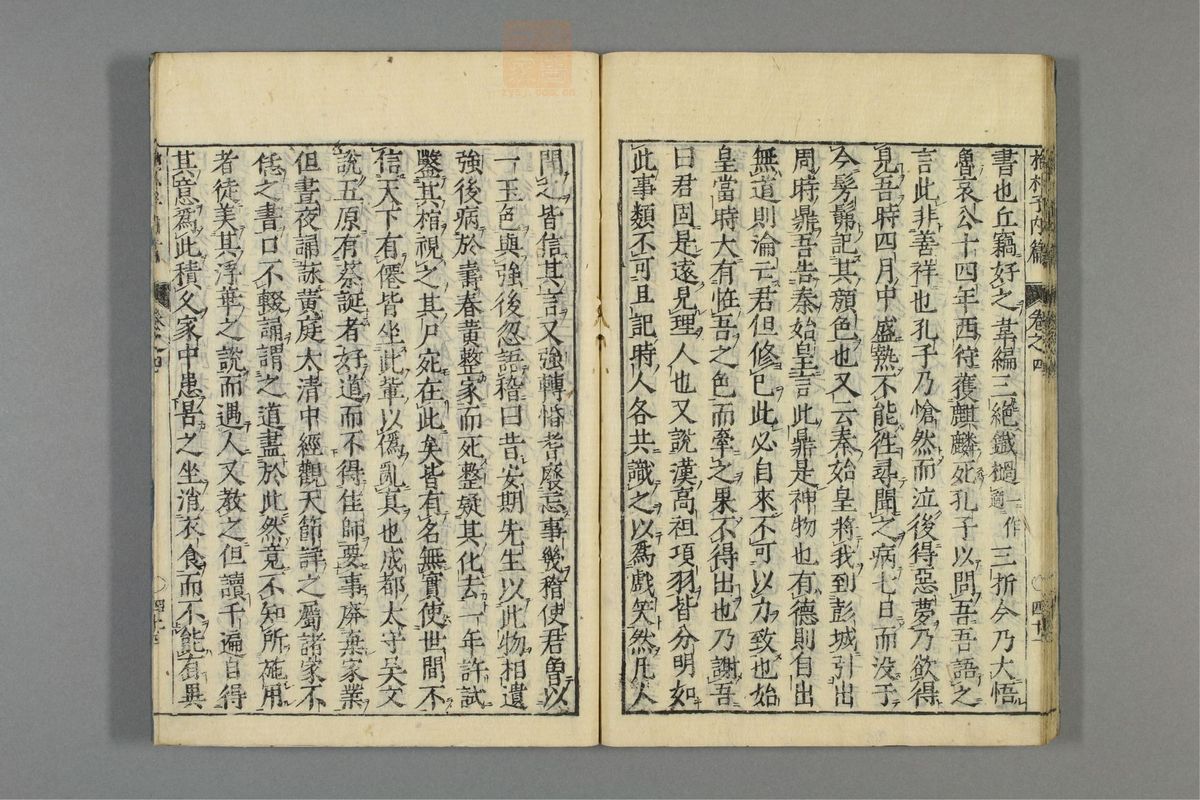 書也丘竊好之韋編三絕鐵檛一作擿三折今乃大悟
魯哀公十四年西狩獲麒麟死孔子以問吾吾語之
言此非善祥也孔子乃愴然而泣後得惡夢乃欲得
見吾時四月中盛熱不能徃尋聞之病七日而没于
今髣髴記其顏色也又云秦始皇將我到彭城引出
周時鼎吾告秦始皇言此鼎是神物也有德則自出
無道則淪亡君但修已此必自來不可以力致也始
皇當時大有恠吾之色而牽之果不得出也乃謝吾
曰君固是遠見理人也又說漢高祖項羽皆分明如
此事類不可具記時人各共識之以爲戲笑然凡人
聞之皆信其言又強轉惛耄廢忘事幾稽使君曾以
一玉巵與強後忽語稽曰昔安期先生以此物相遺
強後病於壽春黃整家而死整疑其化去一年許試
鑿其棺視之其尸宛在此矣皆有名無實使世間不
信天下有僊皆坐此輩以僞亂真也成都太守吴文
說五原有蔡誕者好道而不得佳師要事廢棄家業
但晝夜誦詠黃庭太清中經觀天節詳之屬諸家不
急之書口不輟誦謂之道盡於此然竟不知所施用
者徒美其浮華之說而遇人又教之但讀千遍自得
其意爲此積久家中患苦之坐消衣食而不能有異
抱朴子内篇
卷之四